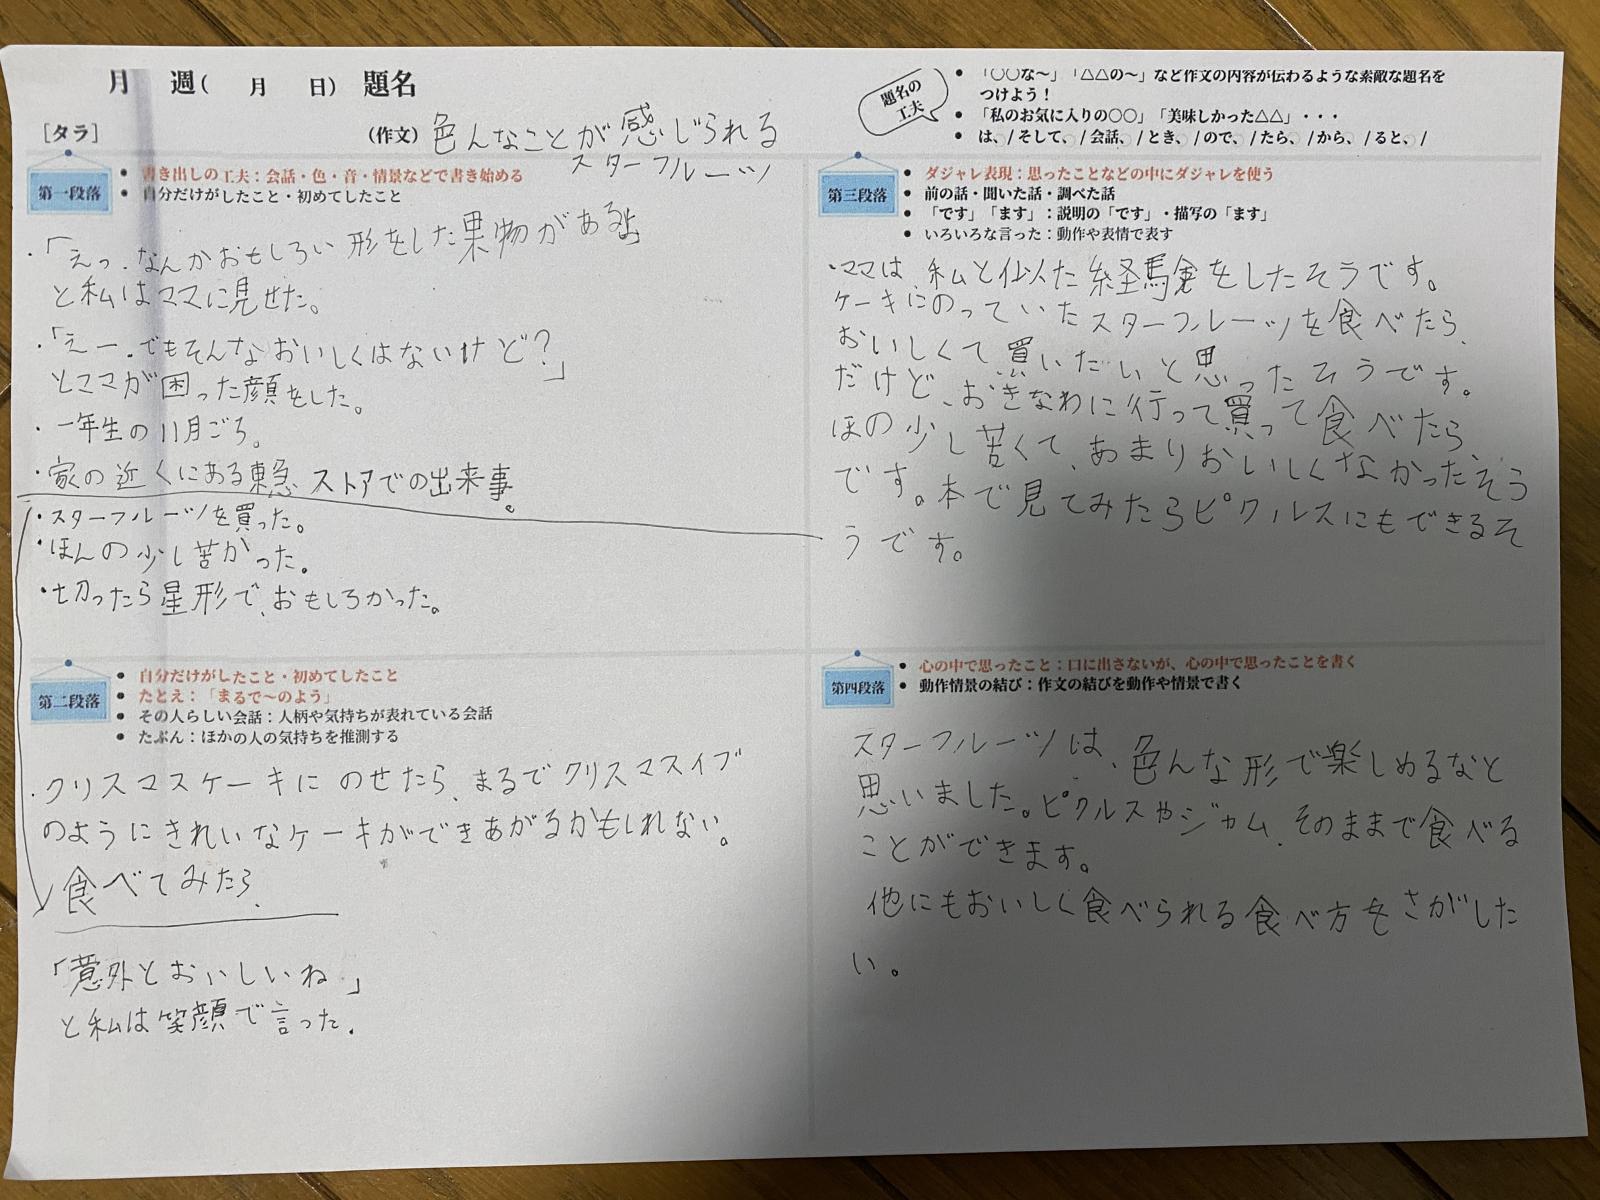 月 週( 月 日) 題名
題名の
工夫
• 「○○な〜」「△△の〜」など作文の内容が伝わるような素敵な題名を
つけよう!
• 「私のお気に入りの○○」「美味しかった△△」・・・
• は、/ そして、/ 会話、/ とき、/ ので、/ たら、/ から、/ ると、/
[タラ]
(作文) 色んなことが感じられる
スターフルーツ
第一段落
• 書き出しの工夫:会話・色・音・情景などで書き始める
• 自分だけがしたこと・初めてしたこと
・「えっ、なんかおもしろい形をした果物があるよ」
と私はママに見せた。
・「えー、でもそんなおいしくはないけど?」
とママが困った顔をした。
・一年生の11月ごろ。
・家の近くにある東急ストアでの出来事。
・スターフルーツを買った。
・ほんの少し苦かった。
・切ったら星形で、おもしろかった。
第二段落
• 自分だけがしたこと・初めてしたこと
• たとえ:「まるで〜のよう」
• その人らしい会話:人柄や気持ちが表れている会話
• たぶん:ほかの人の気持ちを推測する
・クリスマスケーキにのせたら、まるでクリスマスイブ
のようにきれいなケーキができあがるかもしれない。
食べてみたら、
「意外とおいしいね」
と私は笑顔で言った。
第三段落
• ダジャレ表現:思ったことなどの中にダジャレを使う
• 前の話・聞いた話・調べた話
• 「です」「ます」:説明の「です」・描写の「ます」
• いろいろな言った:動作や表情で表す
・ママは、私と似た経験をしたそうです。
ケーキにのっていたスターフルーツを食べたら、
おいしくて買いたいと思ったそうです。
だけど、おきなわに行って買って食べたら、
ほの少し苦くて、あまりおいしくなかったそう
です。本で見てみたらピクルスにもできるそ
うです。
第四段落
• 心の中で思ったこと:口に出さないが、心の中で思ったことを書く
• 動作情景の結び:作文の結びを動作や情景で書く
スターフルーツは、色んな形で楽しめるなと
思いました。ピクルスやジャム、そのままで食べる
ことができます。
他にもおいしく食べられる食べ方をさがした
い。